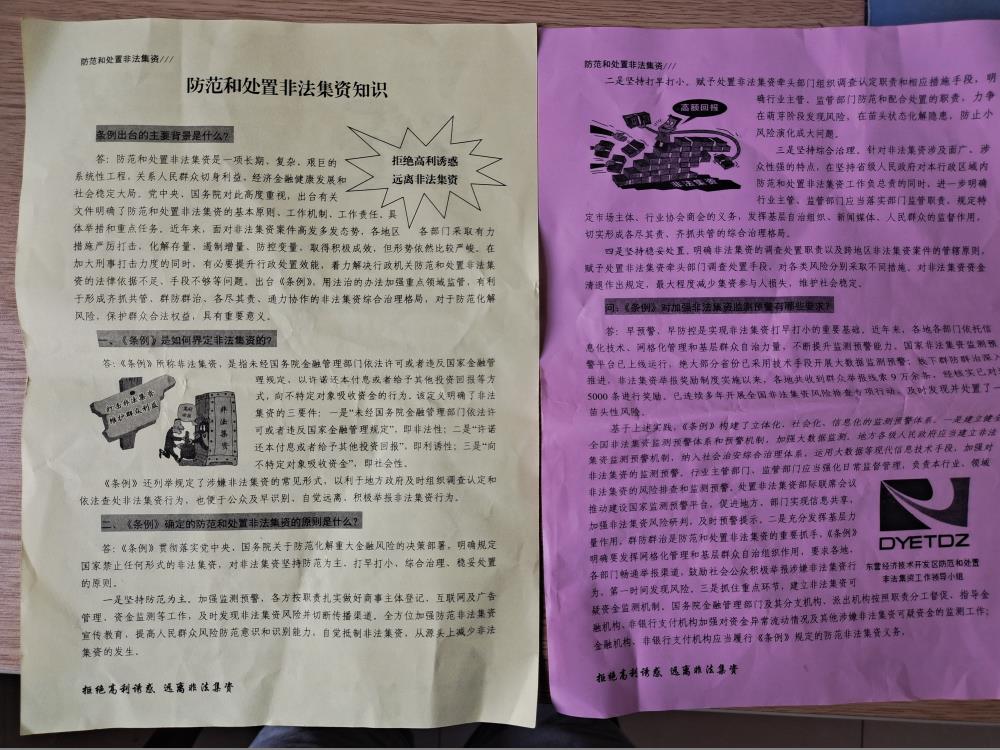 防范和处置非法集资///
防范和处置非法集资知识
条例出台的主要背景是什么?
拒绝高利诱惑
远离非法集资
答：防范和处置非法集资是一项长期、复杂、艰巨的
系统性工程，关系人民群众切身利益，经济金融健康发展和
社会稳定大局。党中央、国务院对此高度重视，出台有关
文件明确了防范和处置非法集资的基本原则、工作机制、工作责任、具
体举措和重点任务。近年来，面对非法集资案件高发多发态势，各地区 各部门采取有力
措施严厉打击，化解存量，遏制增量，防控变量，取得积极成效，但形势依然比较严峻。在
加大刑事打击力度的同时，有必要提升行政处置效能，着力解决行政机关防范和处置非法集
资的法律依据不足、手段不够等问题。出台《条例》，用法治的办法加强重点领域监管，有利
于形成齐抓共管、群防群治、各尽其责、通力协作的非法集资综合治理格局，对于防范化解
风险、保护群众合法权益，具有重要意义。
一、《条例》是如何界定非法集资的?
答：《条例》所称非法集资，是指未经国务院金融管理部门依法许可或者违反国家金融管
理规定，以许诺还本付息或者给予其他投资回报等方
式，向不特定对象吸收资金的行为。该定义明确了非法
集资的三要件：一是“未经国务院金融管理部门依法许
可或者违反国家金融管理规定”，即非法性；二是“许诺
还本付息或者给予其他投资回报”，即利诱性；三是“向
不特定对象吸收资金”，即社会性。
打击非法集资
维护群众利益
非法集资
《条例》还列举规定了涉嫌非法集资的常见形式，以利于地方政府及时组织调查认定和
依法查处非法集资行为，也便于公众及早识别、自觉远离、积极举报非法集资行为。
二、《条例》确定的防范和处置非法集资的原则是什么?
答：《条例》贯彻落实党中央、国务院关于防范化解重大金融风险的决策部署，明确规定
国家禁止任何形式的非法集资，对非法集资坚持防范为主、打早打小、综合治理、稳妥处置
的原则。
一是坚持防范为主。加强监测预警，各方按职责扎实做好商事主体登记、互联网及广告
管理、资金监测等工作，及时发现非法集资风险并切断传播渠道。全方位加强防范非法集资
宣传教育，提高人民群众风险防范意识和识别能力，自觉抵制非法集资，从源头上减少非法
集资的发生。
拒绝高利诱惑 远离非法集资
防范和处置非法集资///
二是坚持打早打小。赋予处置非法集资牵头部门组织调查认定职责和相应措施手段，明
确行业主管、监管部门防范和配合处置的职责，力争
在萌芽阶段发现风险，在苗头状态化解隐患，防止小
风险演化成大问题。
高额回报
三是坚持综合治理。针对非法集资涉及面广、涉
众性强的特点，在坚持省级人民政府对本行政区域内
防范和处置非法集资工作负总责的同时，进一步明确
行业主管、监管部门应当落实部门监管职责，规定特
定市场主体、行业协会商会的义务，发挥基层自治组织、新闻媒体、人民群众的监督作用，
切实形成各尽其责、齐抓共管的综合治理格局。
四是坚持稳妥处置。明确非法集资的调查处置职责以及跨地区非法集资案件的管辖原则，
赋予处置非法集资牵头部门调查处置手段，对各类风险分别采取不同措施。对非法集资资金
清退作出规定，最大程度减少集资参与人损失，维护社会稳定。
问：《条例》对加强非法集资监测预警有哪些要求?
答：早预警、早防控是实现非法集资打早打小的重要基础。近年来，各地各部门依托信
息化技术、网格化管理和基层群众自治力量，不断提升监测预警能力。国家非法集资监测预
警平台已上线运行，绝大部分省份已采用技术手段开展大数据监测预警；线下群防群治深入
推进，非法集资举报奖励制度实施以来，各地共收到群众举报线索9万余条，经核实已对
5000条进行奖励。已连续多年开展全国非法集资风险排查专项行动，及时发现并处置了一
苗头性风险。
基于上述实践，《条例》构建了立体化、社会化、信息化的监测预警体系。一是建立健全
全国非法集资监测预警体系和预警机制，加强大数据监测。地方各级人民政府应当建立非法
集资监测预警机制，纳入社会治安综合治理体系，运用大数据等现代信息技术手段，加强对
非法集资的监测预警。行业主管部门、监管部门应当强化日常监督管理，负责本行业、领域
非法集资的风险排查和监测预警。处置非法集资部际联席会议
推动建设国家监测预警平台，促进地方、部门实现信息共享，
加强非法集资风险研判，及时预警提示。二是充分发挥基层力
量作用。群防群治是防范和处置非法集资的重要抓手，《条例》
明确要发挥网格化管理和基层群众自治组织作用，要求各地、
各部门畅通举报渠道，鼓励社会公众积极举报涉嫌非法集资行
为，第一时间发现风险。三是抓住重点环节，建立非法集资可
疑资金监测机制。国务院金融管理部门及其分支机构、派出机构按照职责分工督促、指导金
融机构、非银行支付机构加强对资金异常流动情况及其他涉嫌非法集资可疑资金的监测工作；
金融机构、非银行支付机构应当履行《条例》规定的防范非法集资义务。
DYETDZ
东营经济技术开发区防范和处置
非法集资工作领导小组
拒绝高利诱惑 远离非法集资